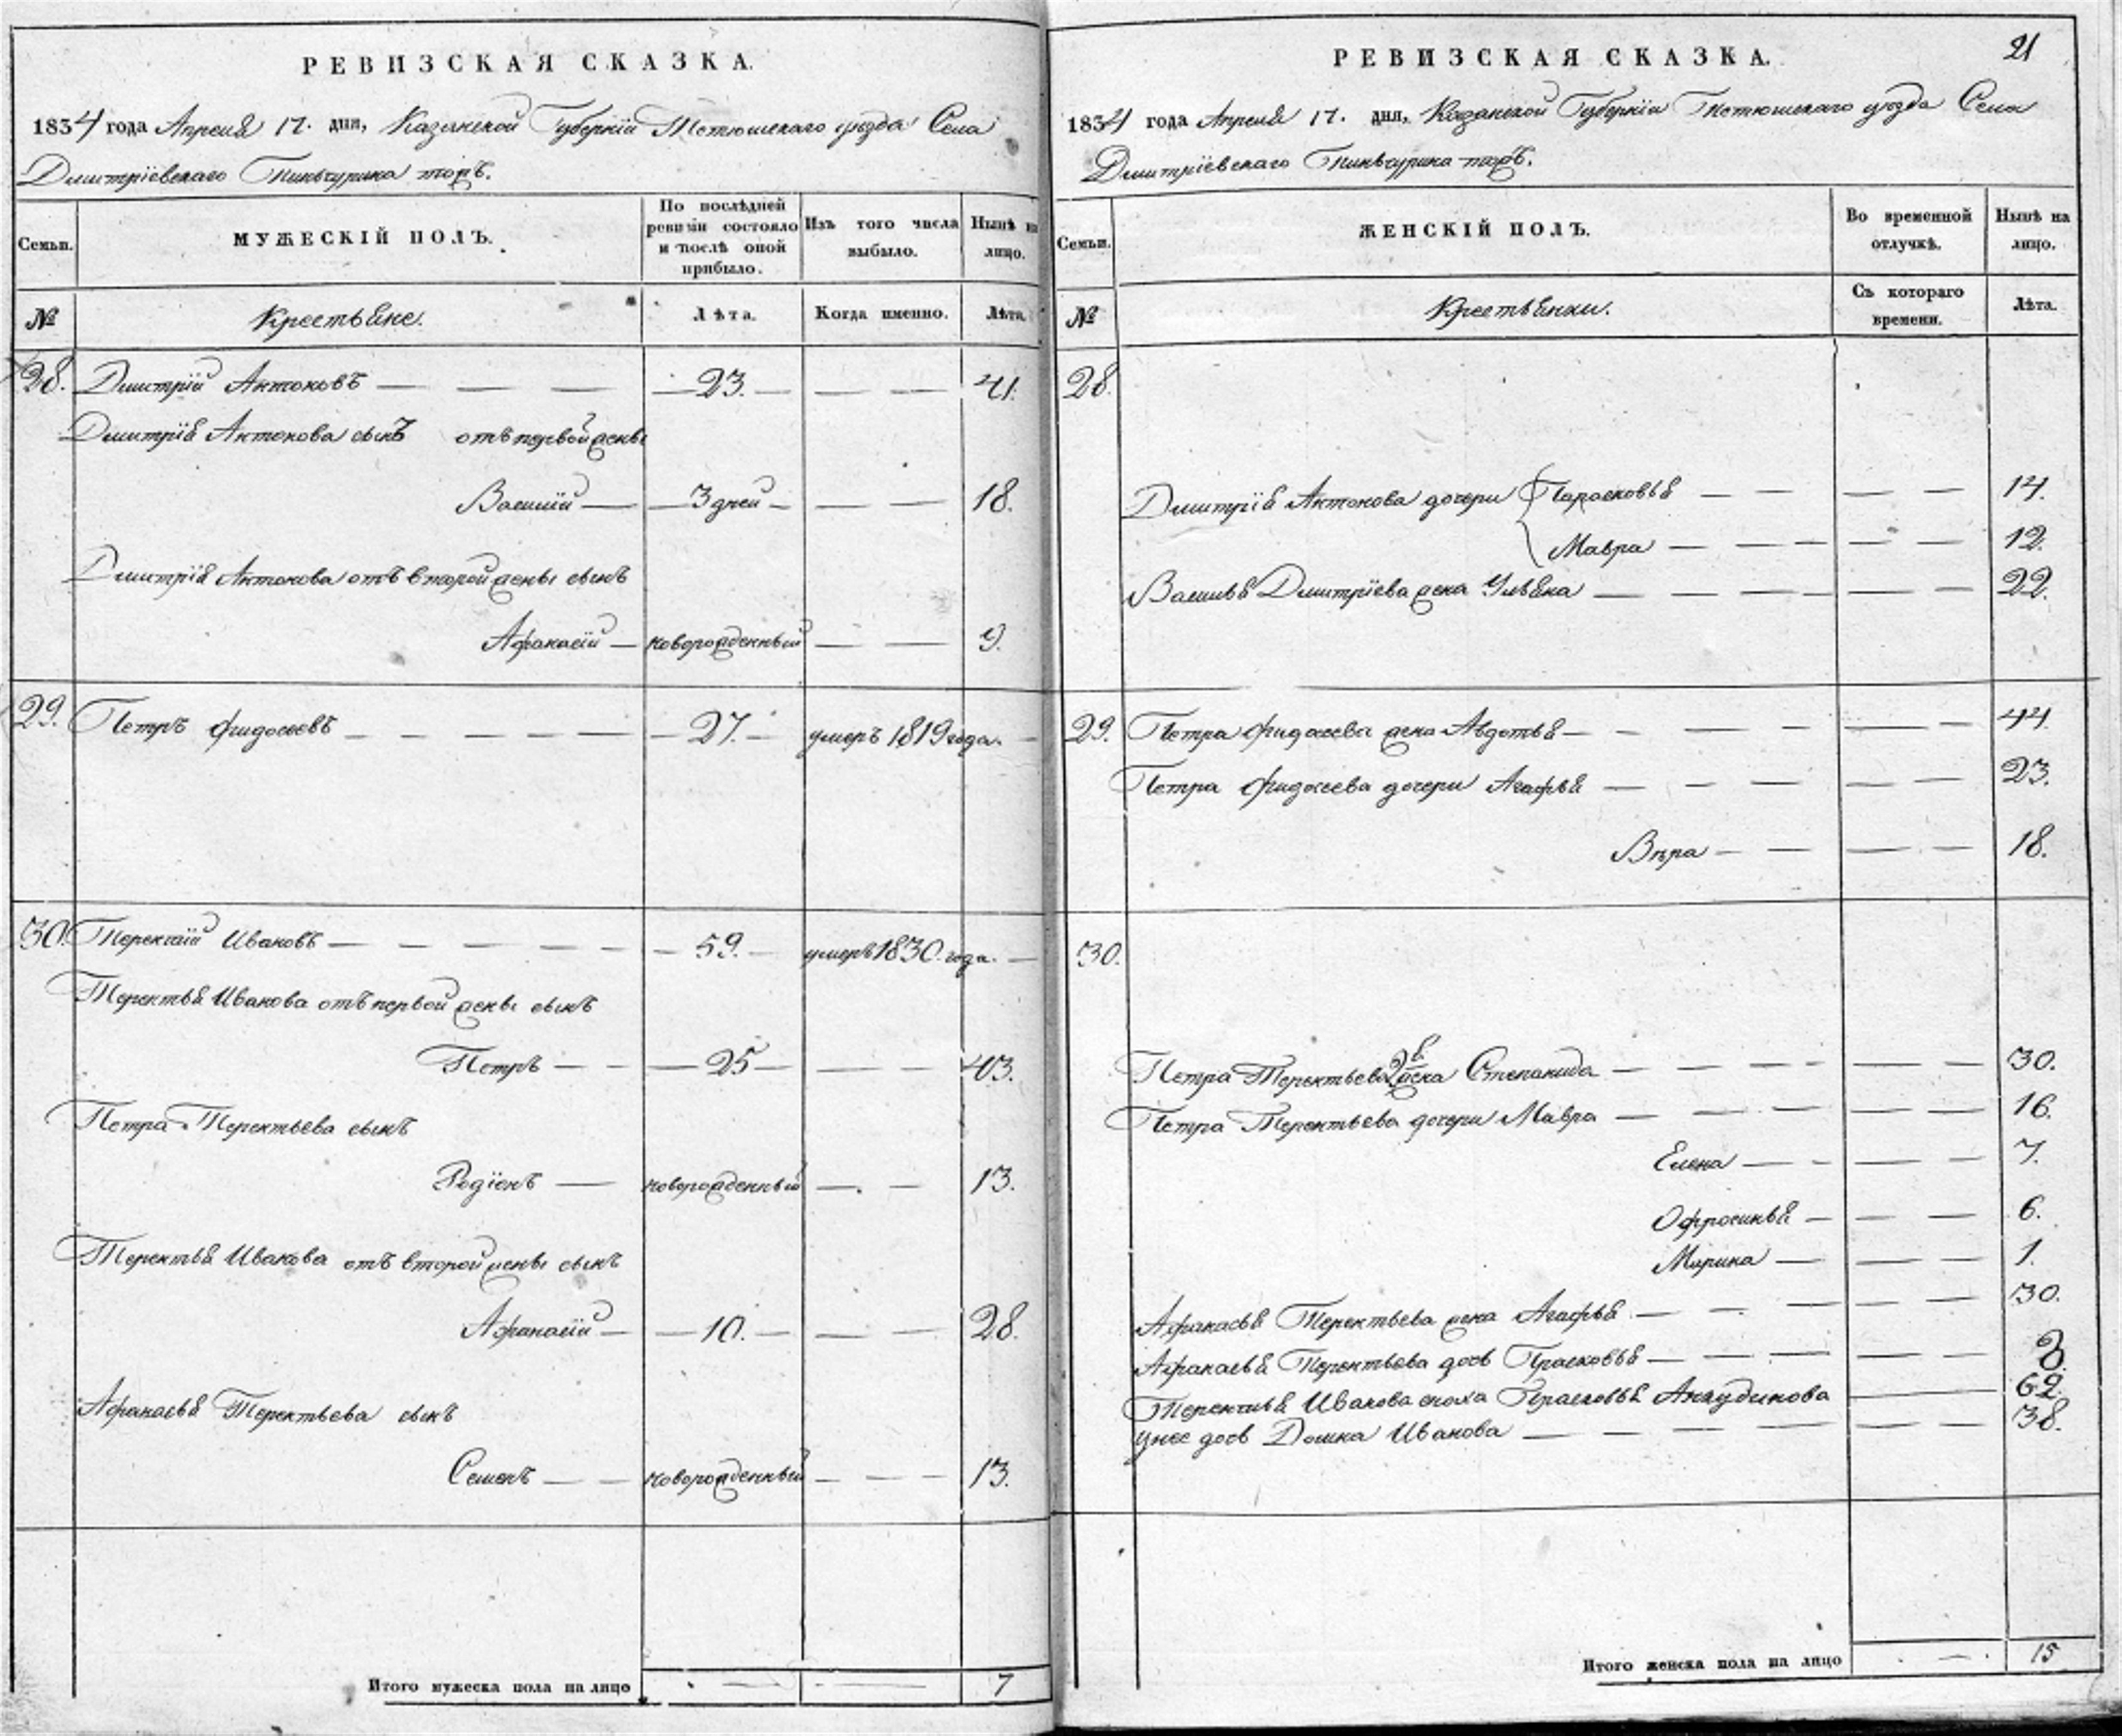 РЕВИЗСКАЯ СКАЗКА.
1834 года Апреля 17. дня, Казанской Губернiи Тетюшскаго уѣзда Села
Дмитрiевскаго тожъ.
Семьи.
МУЖЕСКІЙ ПОЛЪ.
По послѣдней
ревизіи состояло
и послѣ оной
прибыло.
Изъ того числа
выбыло.
Нынѣ на
лицо.
№
Крестьяне.
Лѣта.
Когда именно.
Лѣта.
28. Дмитрiй Антоновъ — — — —23.— — — 41.
Дмитрiя Антонова сынъ отъ первой жены
Василiй — —3 дней— — — 18.
Дмитрiя Антонова отъ второй жены сынъ
Афанасiй — новорожденный — — 9.
29. Петръ Фидосеевъ — — — — — —27.— умеръ 1819 года. —
30. Терентiй Ивановъ — — — — — —59.— умеръ 1830. года. —
Терентья Иванова отъ первой жены сынъ
Петръ — — —25— — — 43.
Петра Терентьева сынъ
Родiонъ — новорожденный — — 13.
Терентья Иванова отъ второй жены сынъ
Афанасiй — —10.— — — 28.
Афанасья Терентьева сынъ
Семенъ — — новорожденный — — 13.
Итого мужеска пола на лицо — — 7
РЕВИЗСКАЯ СКАЗКА.
21
1834 года Апреля 17. дня, Казанской Губернiи Тетюшскаго уѣзда Села
Дмитрiевскаго тожъ.
Семьи.
ЖЕНСКІЙ ПОЛЪ.
Во временной
отлучкѣ.
Нынѣ на
лицо.
№
Крестьянки.
Съ котораго
времени.
Лѣта.
28.
Дмитрiя Антонова дочери Парасковья — — — — 14.
Мавра — — — — — 12.
Василья Дмитрiева жена Ульяна — — — — — 22.
29. Петра Фидосеева жена Авдотья — — — — — — 44.
Петра Фидосеева дочери Агафья — — — — — — 23.
Вѣра — — — — 18.
30.
Петра Терентьева 2я жена Степанида — — — — — — 30.
Петра Терентьева дочери Мавра — — — — — — 16.
Елена — — — — 7.
Офросинья — — — 6.
Марина — — — 1.
Афанасья Терентьева жена Агафья — — — — — 30.
Афанасья Терентьева дочь Прасковья — — — — — 8.
Терентья Иванова сноха Прасковья Анкудинова — — 62.
у нее дочь Домна Иванова — — — — — — 38.
Итого женска пола на лицо — 15